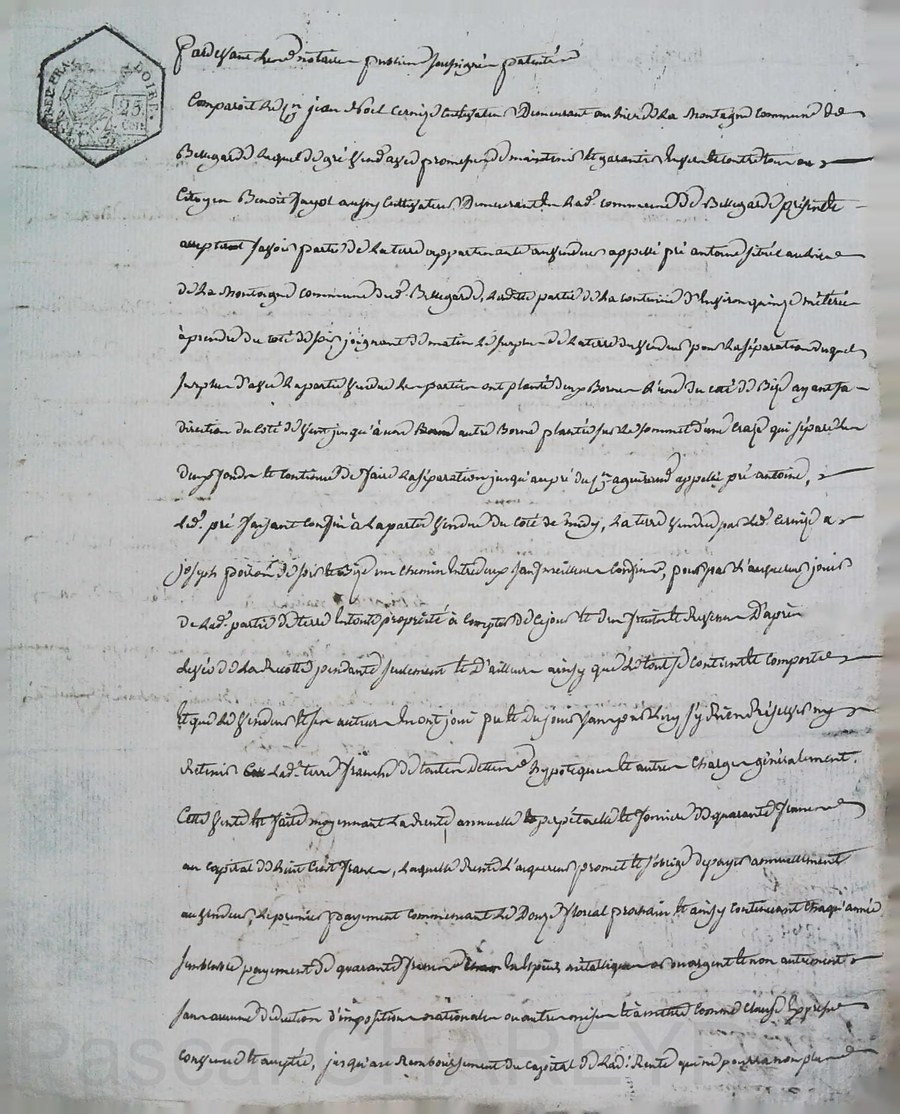 REP. FRA. LOIRE. 25. Cent
Pardevant le notaire public soussigné patenté
Comparoit le cn jean Noel Cernize Cultivateur Demeurant au lieu de La Montagne commune de
Bellegarde lequel de gré vend avec promesse de maintenir et garantir envers et contre tous au
Citoyen Benoit Jayol aussy Cultivateur Demeurant en lad. commune de Bellegarde présent et
acceptant savoir partie de La terre appartenante au vendeur appellé pré antoine située au lieu
de La Montagne commune dud. Bellegarde, Ladite partie de La contenue d'environ quinze méterée
à prendre du coté de soir joignant de matin le surplus de La terre du vendeur pour la séparation duquel
surplus d'avec La partie vendue les parties ont planté deux Bornes L'une du coté de Bize ayant sa
direction du coté de vent jusqu'à une autre Borne plantée sur le sommet d'une craze qui sépare les
deux fonds et continue de faire la séparation jusqu'au pré du cn appellé pré antoine,
led. pré faisant confin à La partie vendue du coté de midy, La terre vendue par led. Cernize a
joseph de soir et bize un chemin entre deux sauf meilleurs confins, pour par l'acquereur jouir
de lad. partie de terre en toute propriété à compter de ce jour et des fruits et revenus D'après
Levée de La Recolte pendante seulement et D'ailleurs ainsy que le tout se contient et comporte
et que le vendeur et ses auteurs en ont joui pu et du jouir sans par luy s'y rien réserver ny
Retenir lad. terre franche de toutes dettes hypoteques et autres charges généralement.
Cette vente est faite moyennant La rente annuelle perpétuelle et foncière de quarante francs
au capital de huit cent francs, Laquelle rente L'acquereur promet et s'oblige de payer annuellement
au vendeur, le premier payement commencant le Douze floreal prochain et ainsy continuant chaqu'année
semblable payement de quarante francs en espèces métalliques or ou argent et non autrement
sans aucune déduction d'impositions nationales ou autres mises et à mettre comme clause expresse
convenue et acceptée, jusqu'au Remboursement du capital de lad. Rente qui ne pourra non plus
Pascal CHAREYRON